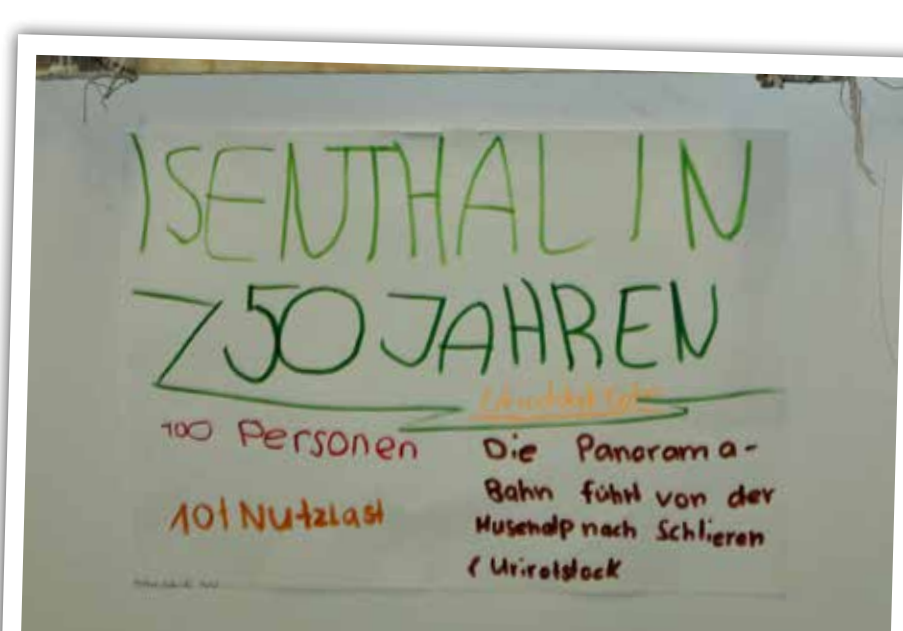 ISENTHAL IN
250 JAHREN
100 Personen
10t Nutzlast
Die Panorama-
Bahn führt von der
Musenalp nach Schlieren
(Urirotstock